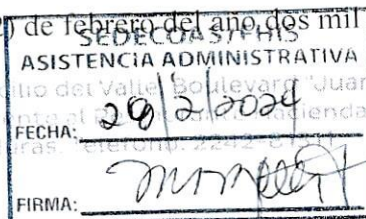 ) de febrero del año dos mil
SEDECOAS/FHIS
ASISTENCIA ADMINISTRATIVA
del Valle, Boulevard "Juan
FECHA: 29/2/2024
Teléfono: 2242-81
FIRMA: